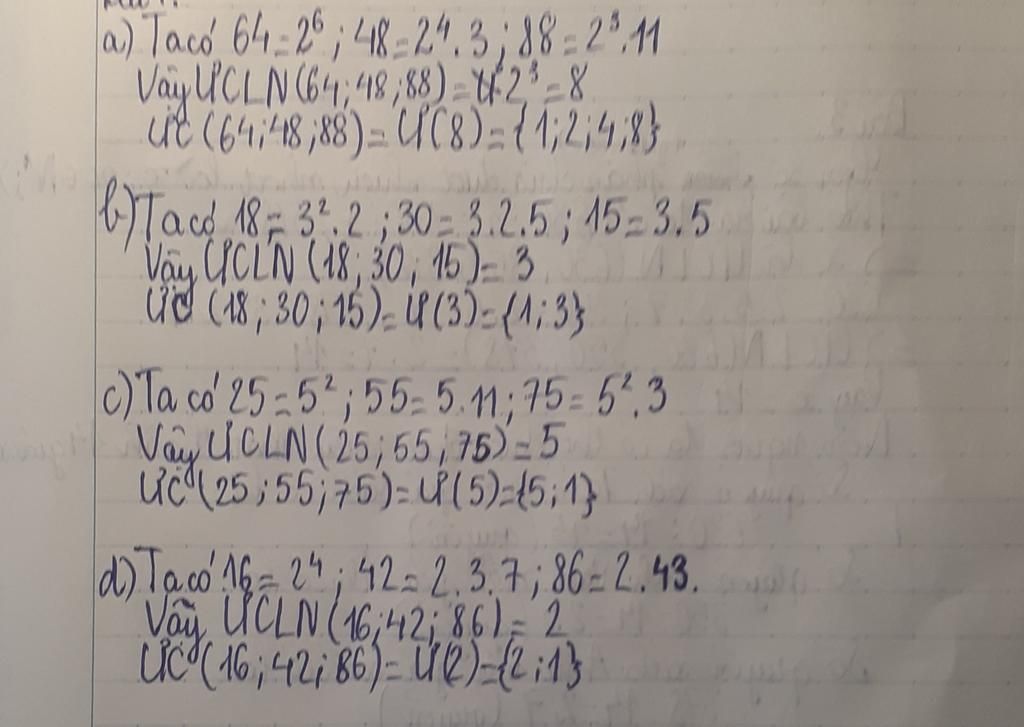 a) Ta có 64 = 2⁶ ; 48 = 2⁴ . 3 ; 88 = 2³ . 11
Vậy ƯCLN (64 ; 48 ; 88) = 2³ = 8
ƯC (64 ; 48 ; 88) = Ư(8) = {1 ; 2 ; 4 ; 8}
b) Ta có 18 = 3² . 2 ; 30 = 3 . 2 . 5 ; 15 = 3 . 5
Vậy ƯCLN (18 ; 30 ; 15) = 3
ƯC (18 ; 30 ; 15) = Ư(3) = {1 ; 3}
c) Ta có 25 = 5² ; 55 = 5 . 11 ; 75 = 5² . 3
Vậy ƯCLN (25 ; 55 ; 75) = 5
ƯC (25 ; 55 ; 75) = Ư(5) = {5 ; 1}
d) Ta có 16 = 2⁴ ; 42 = 2 . 3 . 7 ; 86 = 2 . 43 .
Vậy ƯCLN (16 ; 42 ; 86) = 2
ƯC (16 ; 42 ; 86) = Ư(2) = {2 ; 1}